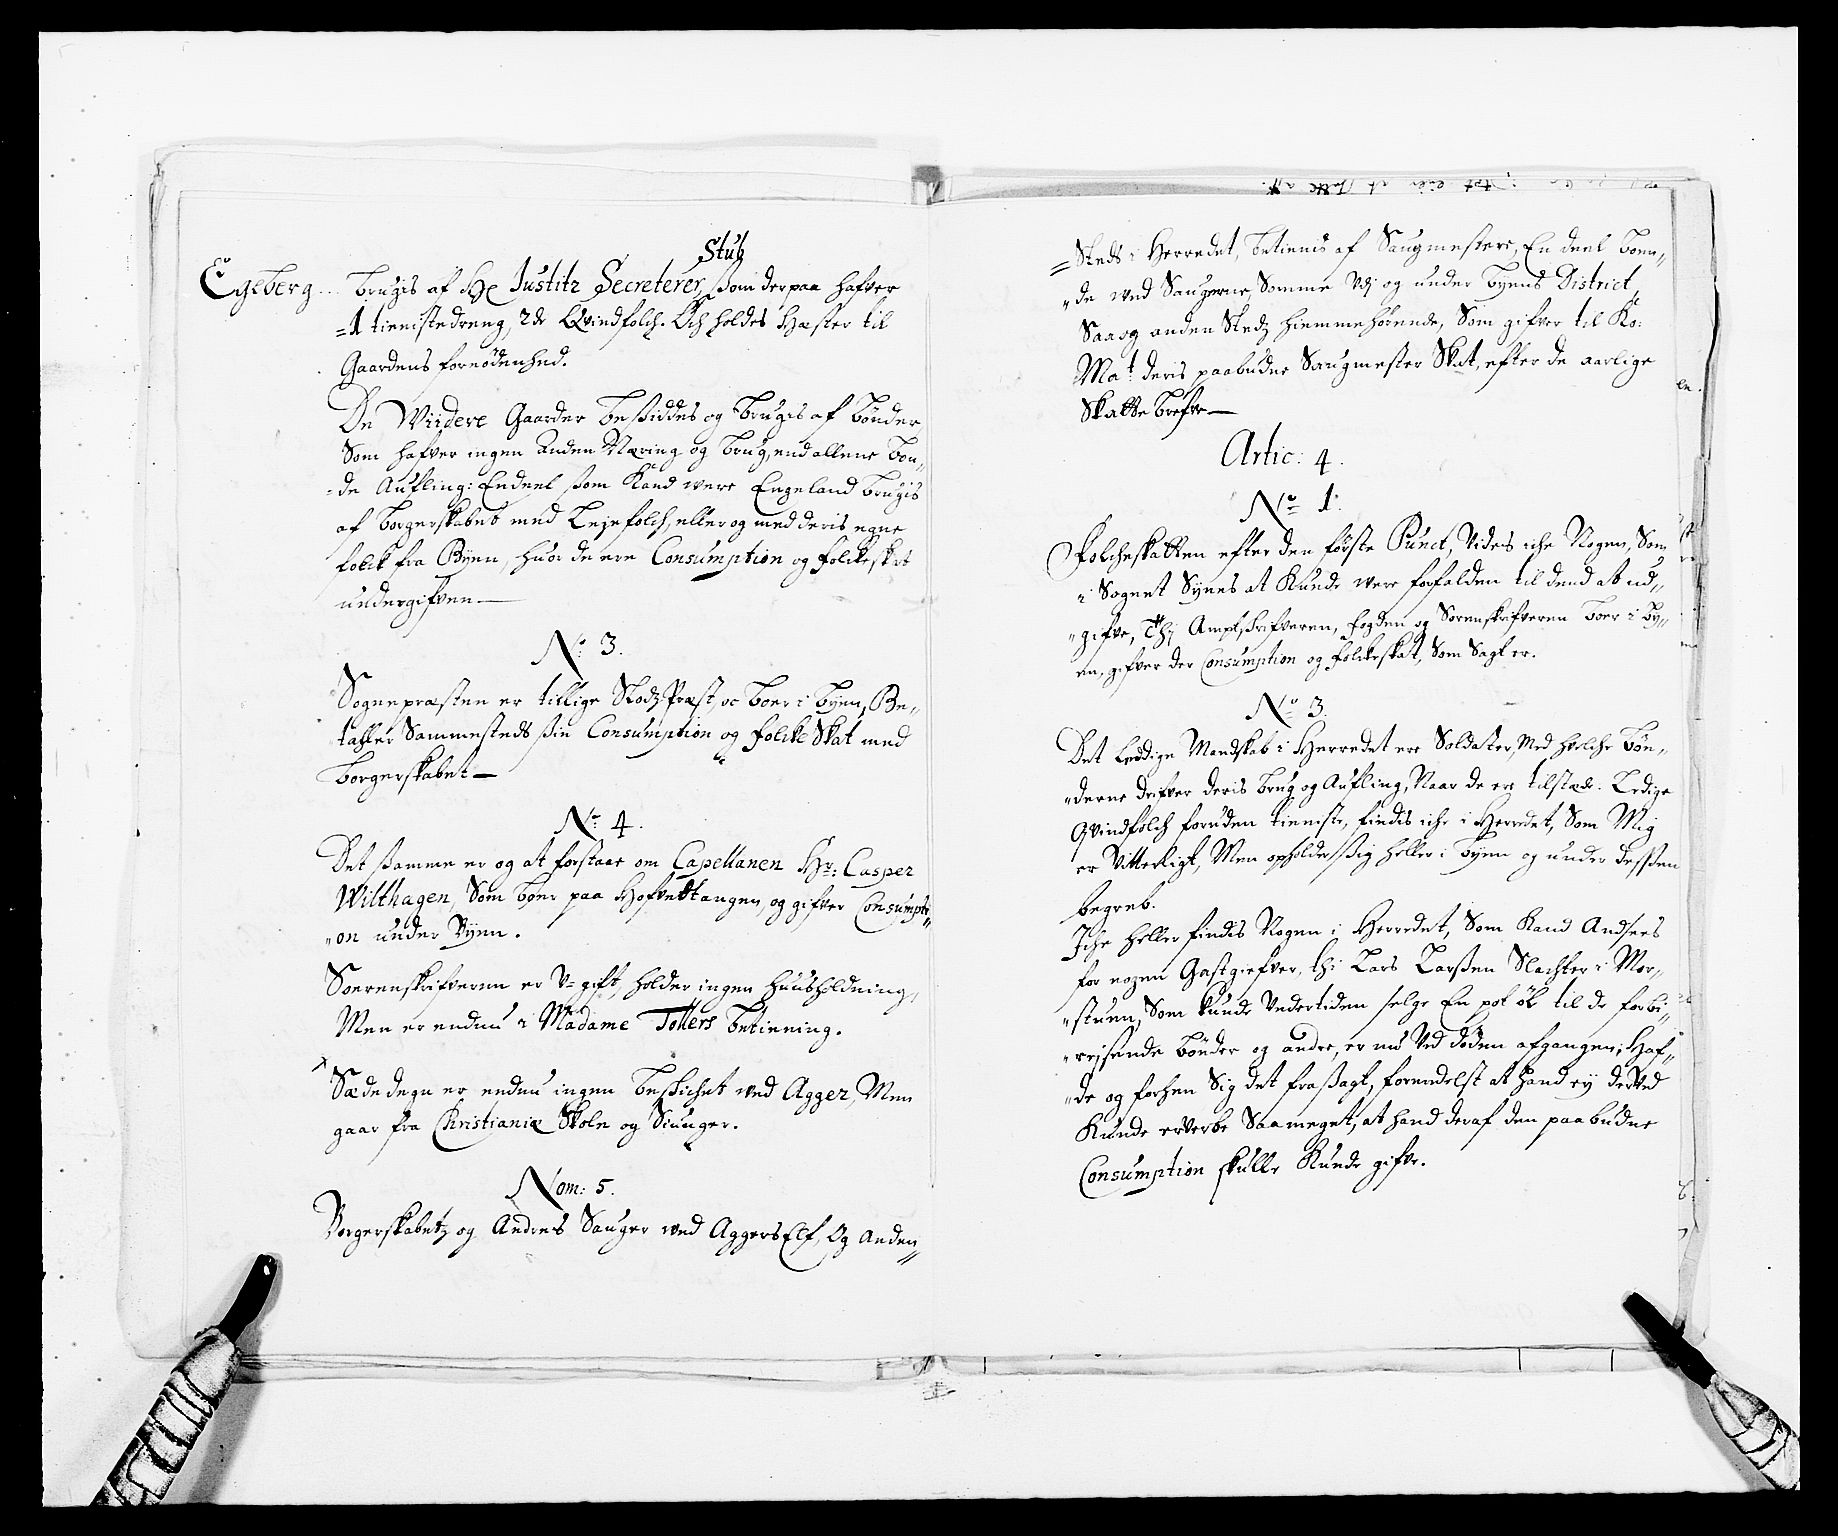 Stub
Egeberg... brugis af Hr Justitz Secreterer, som derpaa hafver
=1 tienistedreng, 2de Qvindfolch. Och holdes Hæster til
Gaardens fornødenhed.
De Wiidere Gaarder besiddes og brugis af Bønder,
Som hafver ingen Anden Næring og brug, end allene bon„
„de Aufling: Endeel som Kand were Engeland brugis
af Borgerskabet med Lejefolch, eller og med deris egne
folck fra Byen, huor de ere Consumption og folckeskat
undergifven —
No: 3.
Sognepræsten er tillige Slodz Præst, oc boer i byen, Be„
taller Sammesteds sin Consumption og folcke Skat med
borgerskabet —
No: 4.
Det samme er og at forstaae om Capellanen Hr: Casper
Wilthagen, Som boer paa Hofvettangen, og gifver Consumpti„
„on under Byen.
Soerenskrifveren er U=gift, holder ingen huusholdning,
Men er endnu i Madame Tollers betiening.
Sædedegn er endnu ingen beskichet ved Agger, Men
gaar fra Christianiæ Skole og Siunger.
Nom: 5.
Borgerskabetz og Andres Sauger ved Aggers Elf, Og Anden„
=Steds i Herredet, betienis af Saugmestere, En deel boen„
„de ved Saugerne, Somme Udj og under byens District,
Saa og anden Stedz hiemmehørende, Som gifver til Ko:
Mat: deris paabudne Saugmester Skat, efter de aarlige
Skatte brefve —
Artic: 4.
No 1.
Folcheskatten efter den første Punct, Vides iche Nogen, Som
i Sognet Synes at Kunde were forfalden til dend at ud„
„gifve, Thj Amptskrifveren, fogden og Sorenskrifveren boer i by„
en, gifver der Consumption og folckeskat, Som Sagt er.
No 3.
Det Leddige Mandskab i Herredet ere Soldater, Med hvelche bøn„
„derne drifver deris brug og Aufling, Naar de er tilstæde. Ledige
Qvindfolch foruden tieniste, findis iche i Herredet, Som Mig
er Vitterligt, Men opholder sig heller i byen og under dessen
begreb.
Iche heller findis Nogen i Herredet, Som Kand Andsees
for nogen Gastgiefver, thi Lars Larsen Slachter i Mor„
„stuen, Som kunde Undertiden selge En pot øl til de forbi„
„rejsende bønder og andre, er nu Ved døden afgangen; Haf„
„de og forhen Sig det frasagt, formedelst at hand ey derved
Kunde erverbe Saameget, at hand deraf den paabudne
Consumption skulle Kunde gifve.